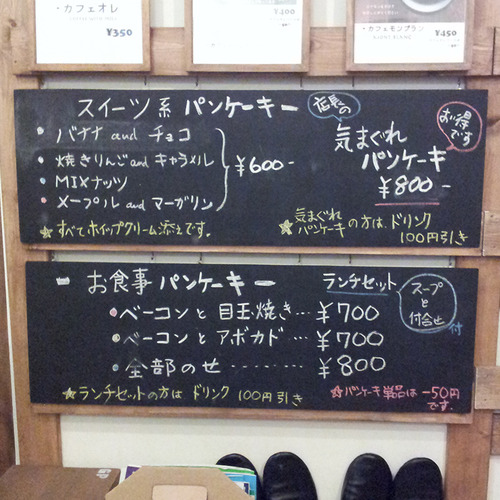 ・カフェオレ
¥350
¥400
・カフェモンブラン
¥450
スイーツ系 パンケーキー
・バナナ and チョコ
・焼きりんご and キャラメル
・MIXナッツ
・メープル and マーガリン
¥600-
☆すべてホイップクリーム添えです。
店長の
気まぐれ
パンケーキ
¥800-
お得
です
☆気まぐれ
パンケーキの方は、ドリンク
100円引き
ー お食事 パンケーキ ー
ランチセット
スープ
と
付合せ
付
・ベーコンと 目玉焼き… ¥700
・ベーコンと アボカド… ¥700
・全部のせ ------ ¥800
☆ランチセットの方は ドリンク 100円引き
☆パンケーキ単品は -50円
です。